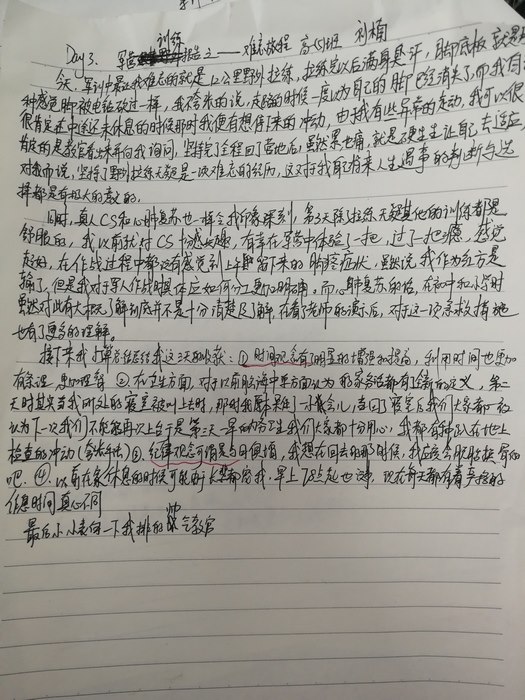 Day 3. 军营训练报告之——难忘旅程 高(5)班
今天,军训中最让我难忘的就是上公里野外拉练,拉练完以后满身是汗,脚底板就是
种感觉脚被电缆砍过一样,我夸张的说,走路的时候一度以为自己的脚已经消失了,而我有
很肯定在中途还未休息的时候那时我便有想停下来的冲动,由于我有些异常的走动,我可以很
有的是教官看出来并向我询问,坚持完了全程回了营地后,虽然累也痛,就是硬生生让自己去适应
对我而说,坚持了野外拉练无疑是一次难忘的经历,这对于我自己将来人生遇事的判断与选
择都是有极大的意义的。
同时,真人CS和心肺复苏也一样令我印象深刻,第3天除拉练无疑其他的训练都是
舒服的,我以前就对CS十分感兴趣,有幸在军营中体验了一把,过了一把瘾,感觉
超好,在作战过程中都没有感觉到上午留下来的脚疼症状,虽然说我作为红方是
输了,但是我对于军人作战时具体应如何分工更加明确。而心肺复苏的话,在初中和小学时
虽然对此有大概了解到底并不是十分清楚及了解,在看了老师的演示后,对于这一项急救措施
也有了更多的理解。
接下来我打算总结总结我这3天的收获:①时间观念有了明显的增强和提高,利用时间也更加
有条理,更加理智 ②在卫生方面,对于以前脑海中单方面认为的家务活都有了全新的定义,第二
天时其实当我所处的寝室被叫上去时,那时我原本呆了一小会儿,查回了寝室后我们大家都一致
认为下一次我们不能够再次上台于是第三天一早的内务卫生我们大家都十分用心,我都有种趴在地上
检查的冲动(合法手法)③,纪律观念可谓是与日俱增,我想在回去的那时候,我应该会
吧、④,以前在家休息的时候可能所长都的我,早上12点起也这,现在每天都有着幸福的
作息时间真心不同
最后小小表白一下我排的帅气教官